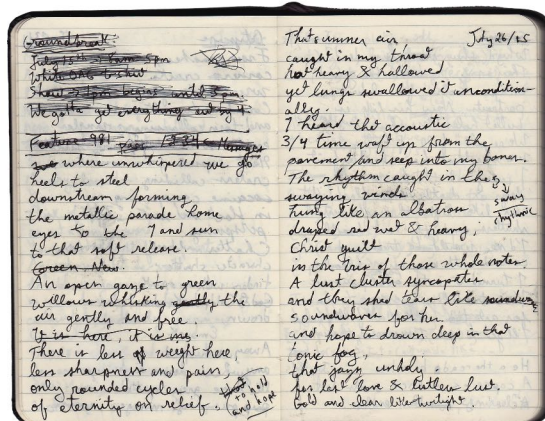 Groundbreak:
July 15th → 8am 5pm
White OAG t-shirt
Show → 1pm begins until 3pm
We gotta get everything out by 4.
Feature 981
where unwhispered we go
heels to steel
downstream forming
the metallic parade home
eyes to the 7 and sun
to that soft release.
Green New.
An open gaze to green
willows whisking gently the
air gently and free.
It is here, it is me.
There is less of weight here,
less sharpness and pain
only rounded cycles
of eternity on relief.
to hold
and hope
That summer air July 26/15
caught in my throat
hot heavy & hallowed
yet lungs swallowed it uncondition-
ally.
I heard the acoustic
3/4 time waft up from the
pavement and seep into my bones.
The rhythm caught in the
swaying winds sway
hung like an albatross rhythmic
draped red wet & heavy.
Christ guilt
in the iris of those whole notes.
A lust cluster syncopates
and they shed tears like soundwaves
soundwaves for her
and hope to drown deep in that
tonic fog,
that jazz unholy.
her last love & listless lust.
Bold and clear like twilight.